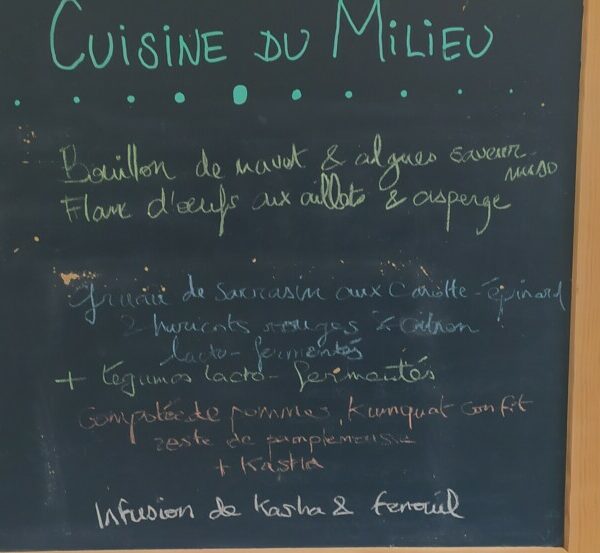 CUISINE DU MILIEU
Bouillon de navet & algues saveur miso
Flanc d'oeufs aux aillots & asperge
gruau de sarrasin aux carotte-épinard
haricots rouges & citron
lacto-fermentés
+ légumes lacto-fermentés
compotée de pommes, kumquat confit
zeste de pamplemousse
+ Kasha
Infusion de Kasha & fenouil